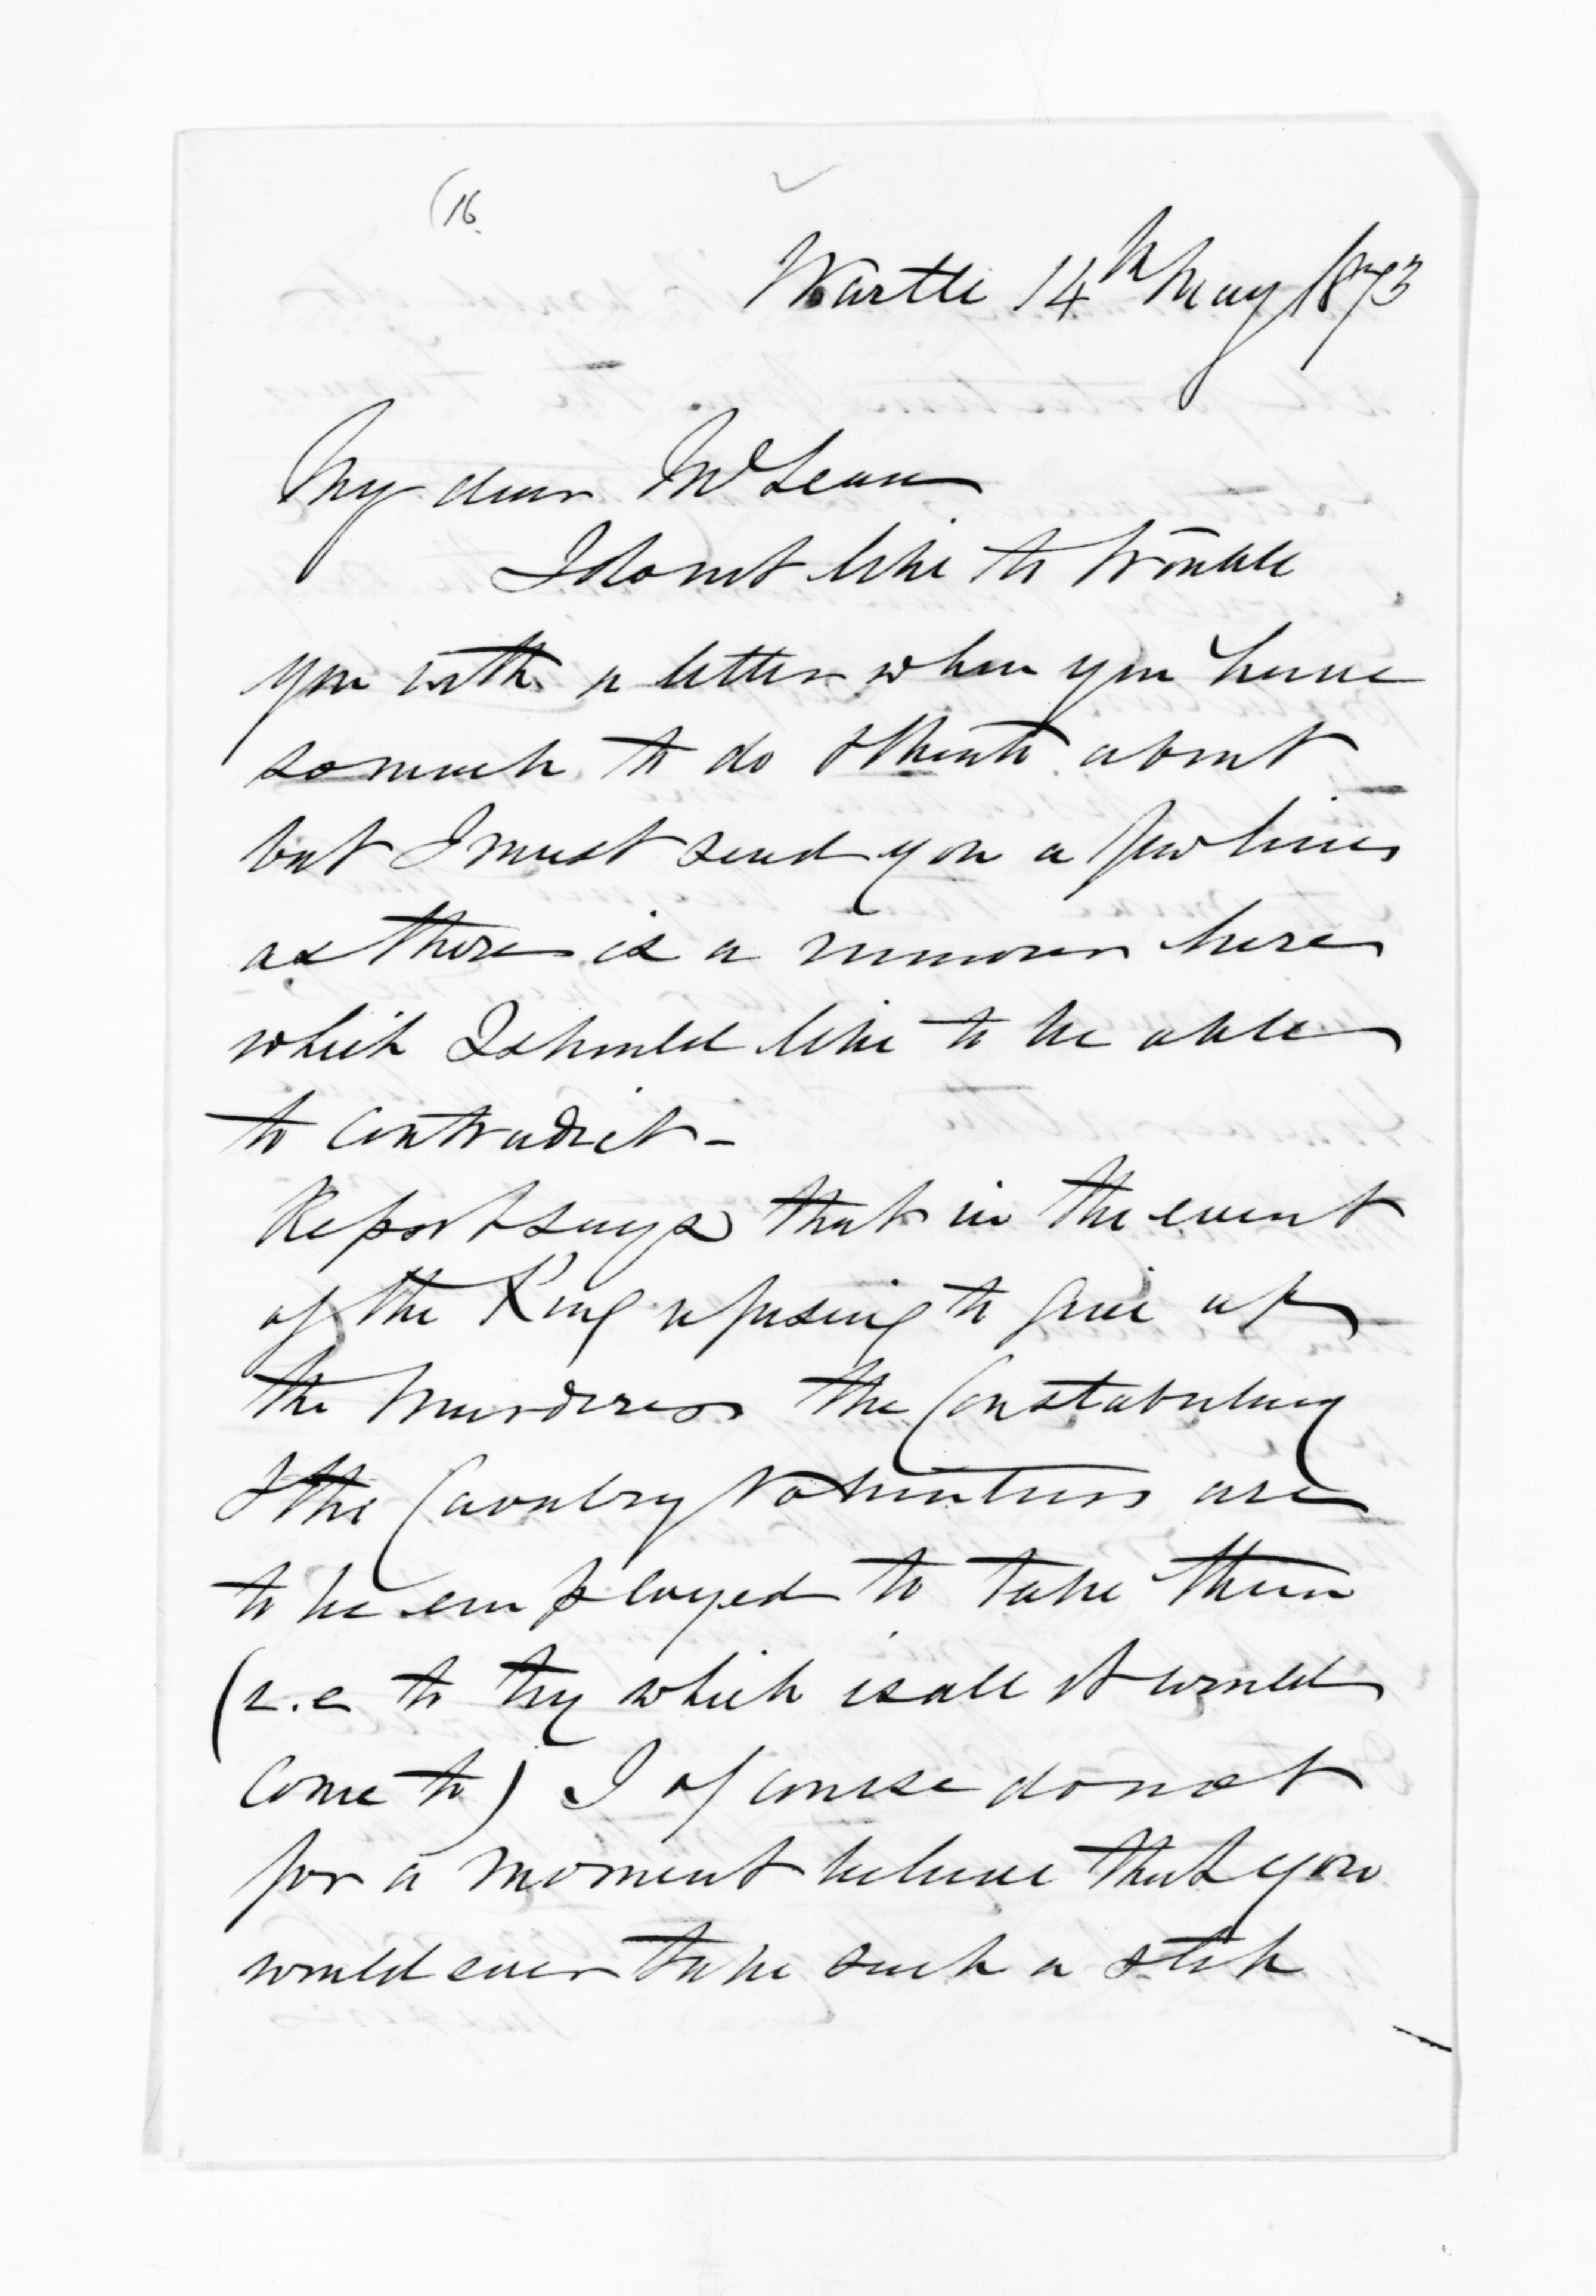 (16.
Wartle 14th May 1873
My dear McLean
I do not like to trouble
you with a letter when you have
so much to do & think about
but I must send you a few lines
as there is a rumour here
which I should like to be able
to contradict -
Report says that in the event
of the King refusing to give up
the Murderers the Constabulary
& the Cavalry Volunteers are
to be employed to take them
(i.e to try which is all it would
come to) I of course do not
for a moment believe that you
would ever take such a step